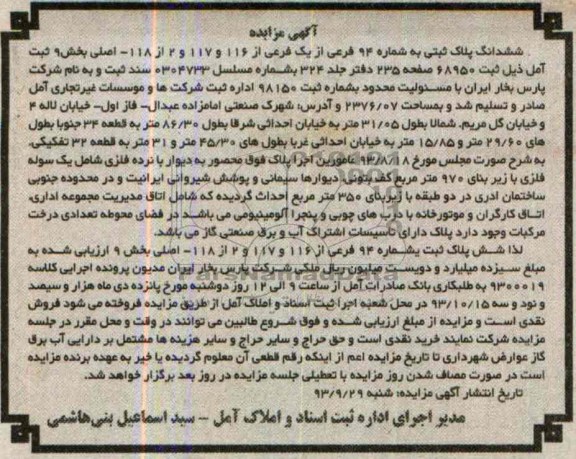 آگهی مزایده
ششدانگ پلاک ثبتی به شماره ۹۴ فرعی از یک فرعی از ۱۱۶ و ۱۱۷ و ۲ از ۱۱۸- اصلی بخش۹ ثبت
آمل ذیل ثبت ۶۸۹۵۰ صفحه ۲۳۵ دفتر جلد ۳۲۴ بشماره مسلسل ۰۳۰۴۷۳۳ سند ثبت و به نام شرکت
پارس بخار ایران با مسئولیت محدود بشماره ثبت ۹۸۱۵۰ اداره ثبت شرکت ها و موسسات غیرتجاری آمل
صادر و تسلیم شد و بمساحت ۲۳۷۶/۰۷ و آدرس: شهرک صنعتی امامزاده عبدال- فاز اول- خیابان لاله ۴
و خیابان گل مریم. شمالا بطول ۳۱/۰۵ متر به خیابان احداثی شرقا بطول ۸۶/۳۰ متر به قطعه ۳۴ جنوبا بطول
های ۲۹/۶۰ متر و ۱۵/۸۵ متر به خیابان احداثی غربا بطول های ۴۵/۳۰ متر و ۳۱ متر به قطعه ۳۲ تفکیکی.
به شرح صورت مجلس مورخ ۹۳/۸/۱۸ مامورین اجرا پلاک فوق محصور به دیوار با نرده فلزی شامل یک سوله
فلزی با زیر بنای ۹۷۰ متر مربع کف بتونی دیوارها سیمانی و پوشش شیروانی ایرانیت و در محدوده جنوبی
ساختمان ادری در دو طبقه با زیربنای ۳۵۰ متر مربع احداث گردیده که شامل اتاق مدیریت مجموعه اداری،
اتاق کارگران و موتورخانه با درب های چوبی و پنجرا آلومینیومی می باشد در فضای محوطه تعدادی درخت
مرکبات وجود دارد پلاک دارای تاسیسات اشتراک آب و برق صنعتی گاز می باشد.
لذا شش پلاک ثبت بشماره ۹۴ فرعی از ۱۱۶ و ۱۱۷ و ۲ از ۱۱۸- اصلی بخش ۹ ارزیابی شده به
مبلغ سیزده میلیارد و دویست میلیون ریال ملکی شرکت پارس بخار ایران مدیون پرونده اجرایی کلاسه
۹۳۰۰۰۱۹ به طلبکاری بانک صادرات آمل از ساعت ۹ الی ۱۲ روز دوشنبه مورخ پانزده دی ماه هزار و سیصد
و نود و سه ۹۳/۱۰/۱۵ در محل شعبه اجرا ثبت اسناد و املاک آمل از طریق مزایده فروخته می شود فروش
نقدی است و مزایده از مبلغ ارزیابی شده و فوق شروع طالبین می توانند در وقت و محل مقرر در جلسه
مزایده شرکت نمایند خرید نقدی است و حق حراج و سایر حراج و سایر هزینه ها مشتمل بر دارایی آب برق
گاز عوارض شهرداری تا تاریخ مزایده اعم از اینکه رقم قطعی آن معلوم گردیده یا خیر به عهده برنده مزایده
است در صورت مصاف شدن روز مزایده با تعطیلی جلسه مزایده در روز بعد برگزار خواهد شد.
تاریخ انتشار آگهی مزایده: شنبه ۹۳/۹/۲۹
مدیر اجرای اداره ثبت اسناد و املاک آمل - سید اسماعیل بنی‌هاشمی